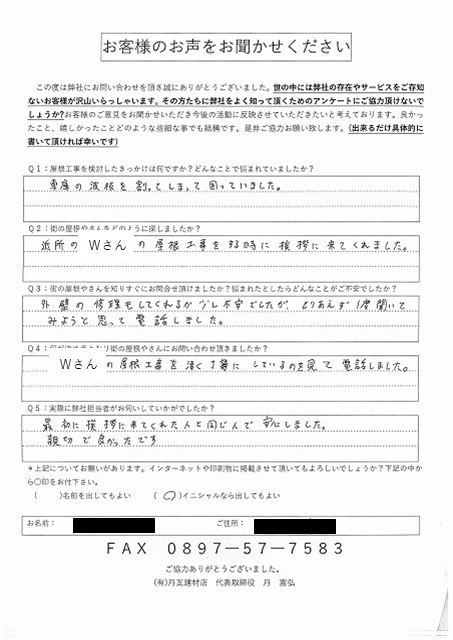 お客様のお声をお聞かせください
この度は弊社にお問い合わせを頂き誠にありがとうございました。世の中には弊社の存在やサービスをご存知
ないお客様が沢山いらっしゃいます。その方たちに弊社をよく知って頂くためのアンケートにご協力頂けないで
しょうか?お客様のご意見をお聞かせいただき今後の活動に反映させていただきたいと考えております。良かっ
たこと、嬉しかったことどのような些細な事でも結構です。是非ご協力お願い致します。(出来るだけ具体的に
書いて頂ければ幸いです)
Q1:屋根工事を検討したきっかけは何ですか?どんなことで悩まれていましたか?
車庫の波板を割ってしまって困っていました。
Q2:街の屋根やさんをどのように探しましたか?
近所の Wさん の屋根工事をする時に挨拶に来てくれました。
Q3:街の屋根やさんを知りすぐにお問合せ頂けましたか?悩まれたとしたらどんなことがご不安でしたか?
外壁の修理もしてくれるか少し不安でしたが、とりあえず1度聞いて
みようと思って電話しました。
Q4:何が決め手となり街の屋根やさんにお問い合わせ頂きましたか?
Wさん の屋根工事を凄く丁寧にしているのを見て電話しました。
Q5:実際に弊社担当者がお伺いしていかがでしたか?
最初に挨拶に来てくれた人と同じんで安心しました。
親切で良かったです
*上記についてお願いがあります。インターネットや印刷物に掲載させて頂いてもよろしいでしょうか?下記の中か
ら〇印をお付下さい。
( )名前を出してもよい (〇)イニシャルなら出してもよい
お名前: ご住所:
FAX 0897-57-7583
ご協力ありがとうございました。
(有)丹瓦建材店 代表取締役 丹 富弘